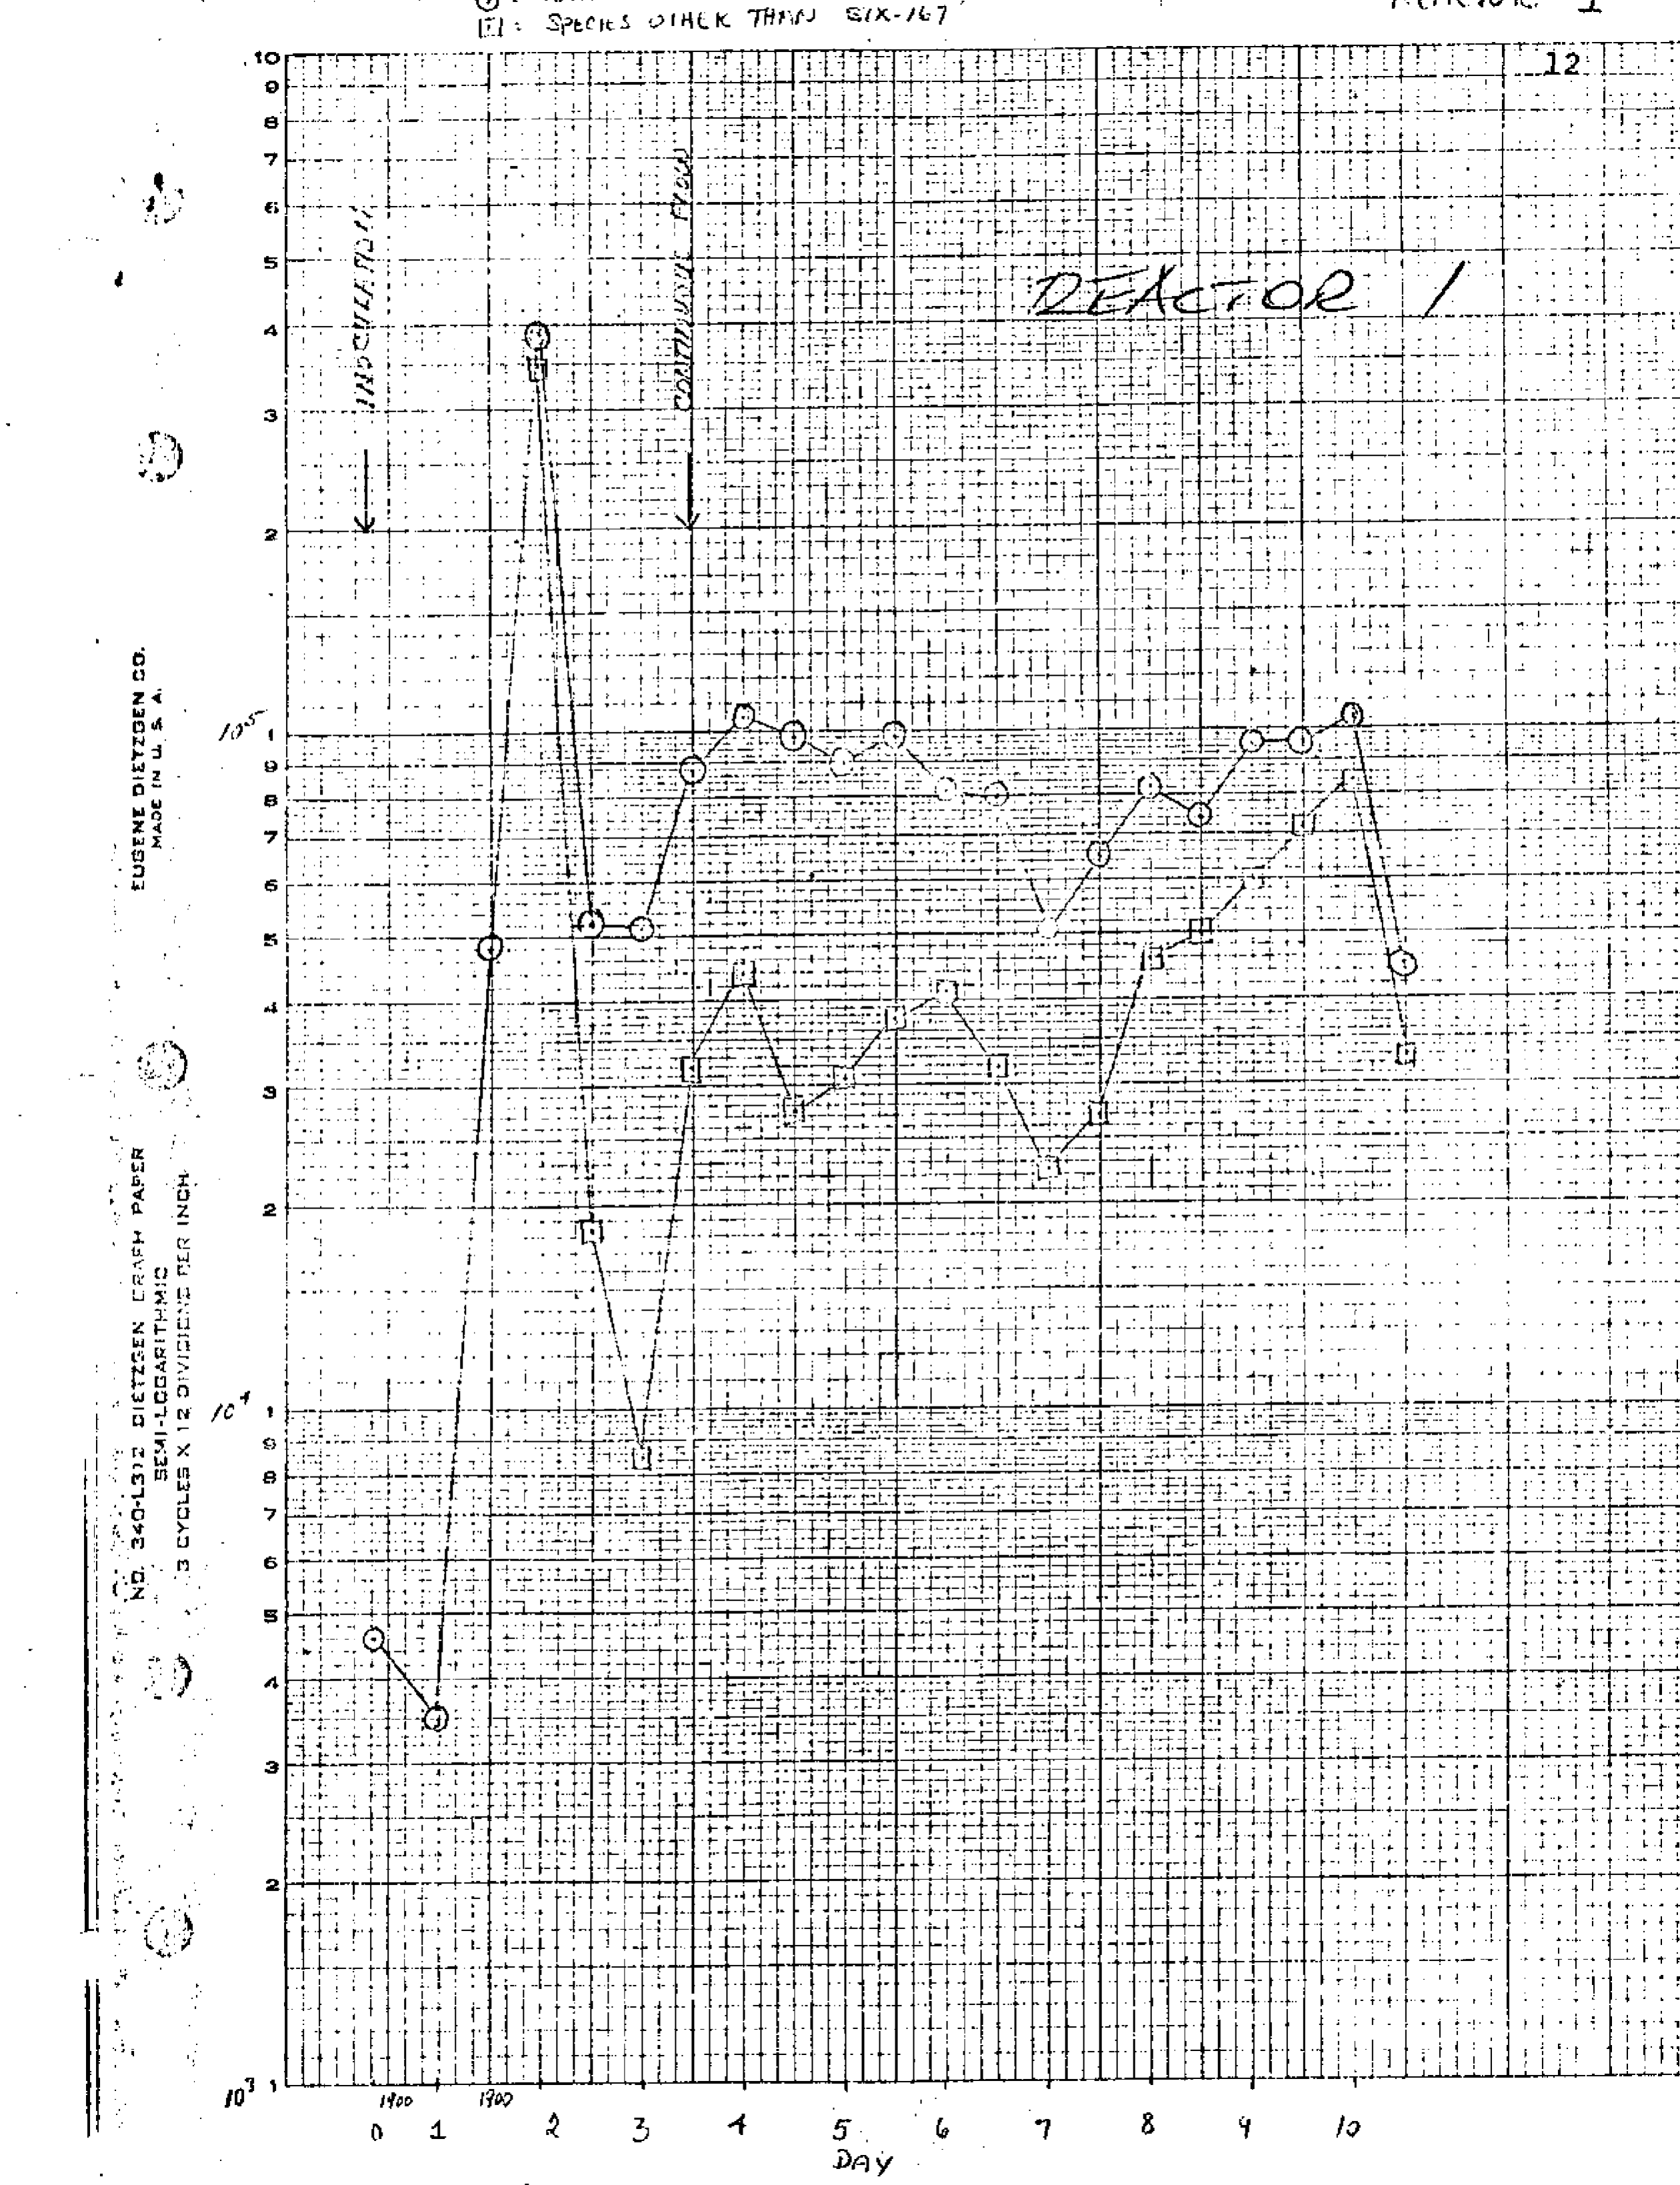 : SPECIES OTHER THAN SIX-167
1
12
10
9
8
7
6
5
4
3
2
INOCULATION
CONTINUOUS FLOW
REACTOR 1
10⁵ 1
9
8
7
6
5
4
3
2
10⁴ 1
9
8
7
6
5
4
3
2
10³ 1
1900 1900
0 1 2 3 4 5 6 7 8 9 10
DAY
EUGENE DIETZGEN CO.
MADE IN U. S. A.
NO. 340-L312 DIETZGEN GRAPH PAPER
SEMI-LOGARITHMIC
3 CYCLES X 12 DIVISIONS PER INCH